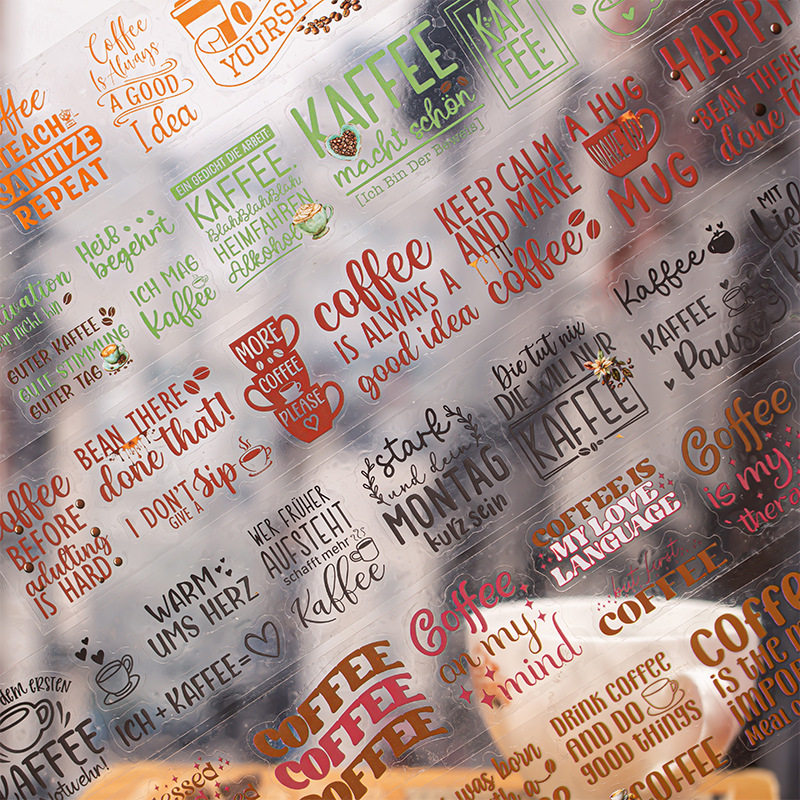 Coffee
TEACH
SANITIZE
REPEAT
Coffee
Is Always
A GOOD
Idea
YOURSELF
KAFFEE
macht schön
[Ich Bin Der Beweis]
KAF
FEE
EIN GEDICHT DIE ARBEIT:
KAFFEE.
BlahBlahBlah
HEIMFAHREN
Alkohol
Heiß
begehrt
ICH MAG
Kaffee
GUTER KAFFEE
GUTE STIMMUNG
GUTER TAG
HAPPY
BEAN THERE
done
A HUG
WAKE UP
MUG
KEEP CALM
AND MAKE
coffee
coffee
IS ALWAYS A
good idea
MORE
COFFEE
PLEASE
BEAN THERE
done that!
I DON'T
GIVE A
Sip
coffee
BEFORE
adulting
IS HARD
MIT
Kaffee
KAFFEE
Pause
Die tut nix
DIE WILL NUR
KAFFEE
stark
und dein
MONTAG
kurz sein
WER FRÜHER
AUFSTEHT
schafft mehr
Kaffee
WARM
UMS HERZ
ICH + KAFFEE =
dem ERSTEN
KAFFEE
Notwehr!
Coffee
is my
COFFEE IS
MY LOVE
LANGUAGE
but first
COFFEE
Coffee
on my
mind
COFFEE
COFFEE
COFFEE
COFFEE
is the
Meal
DRINK COFFEE
AND DO
GOOD THINGS
was born
COFFEE